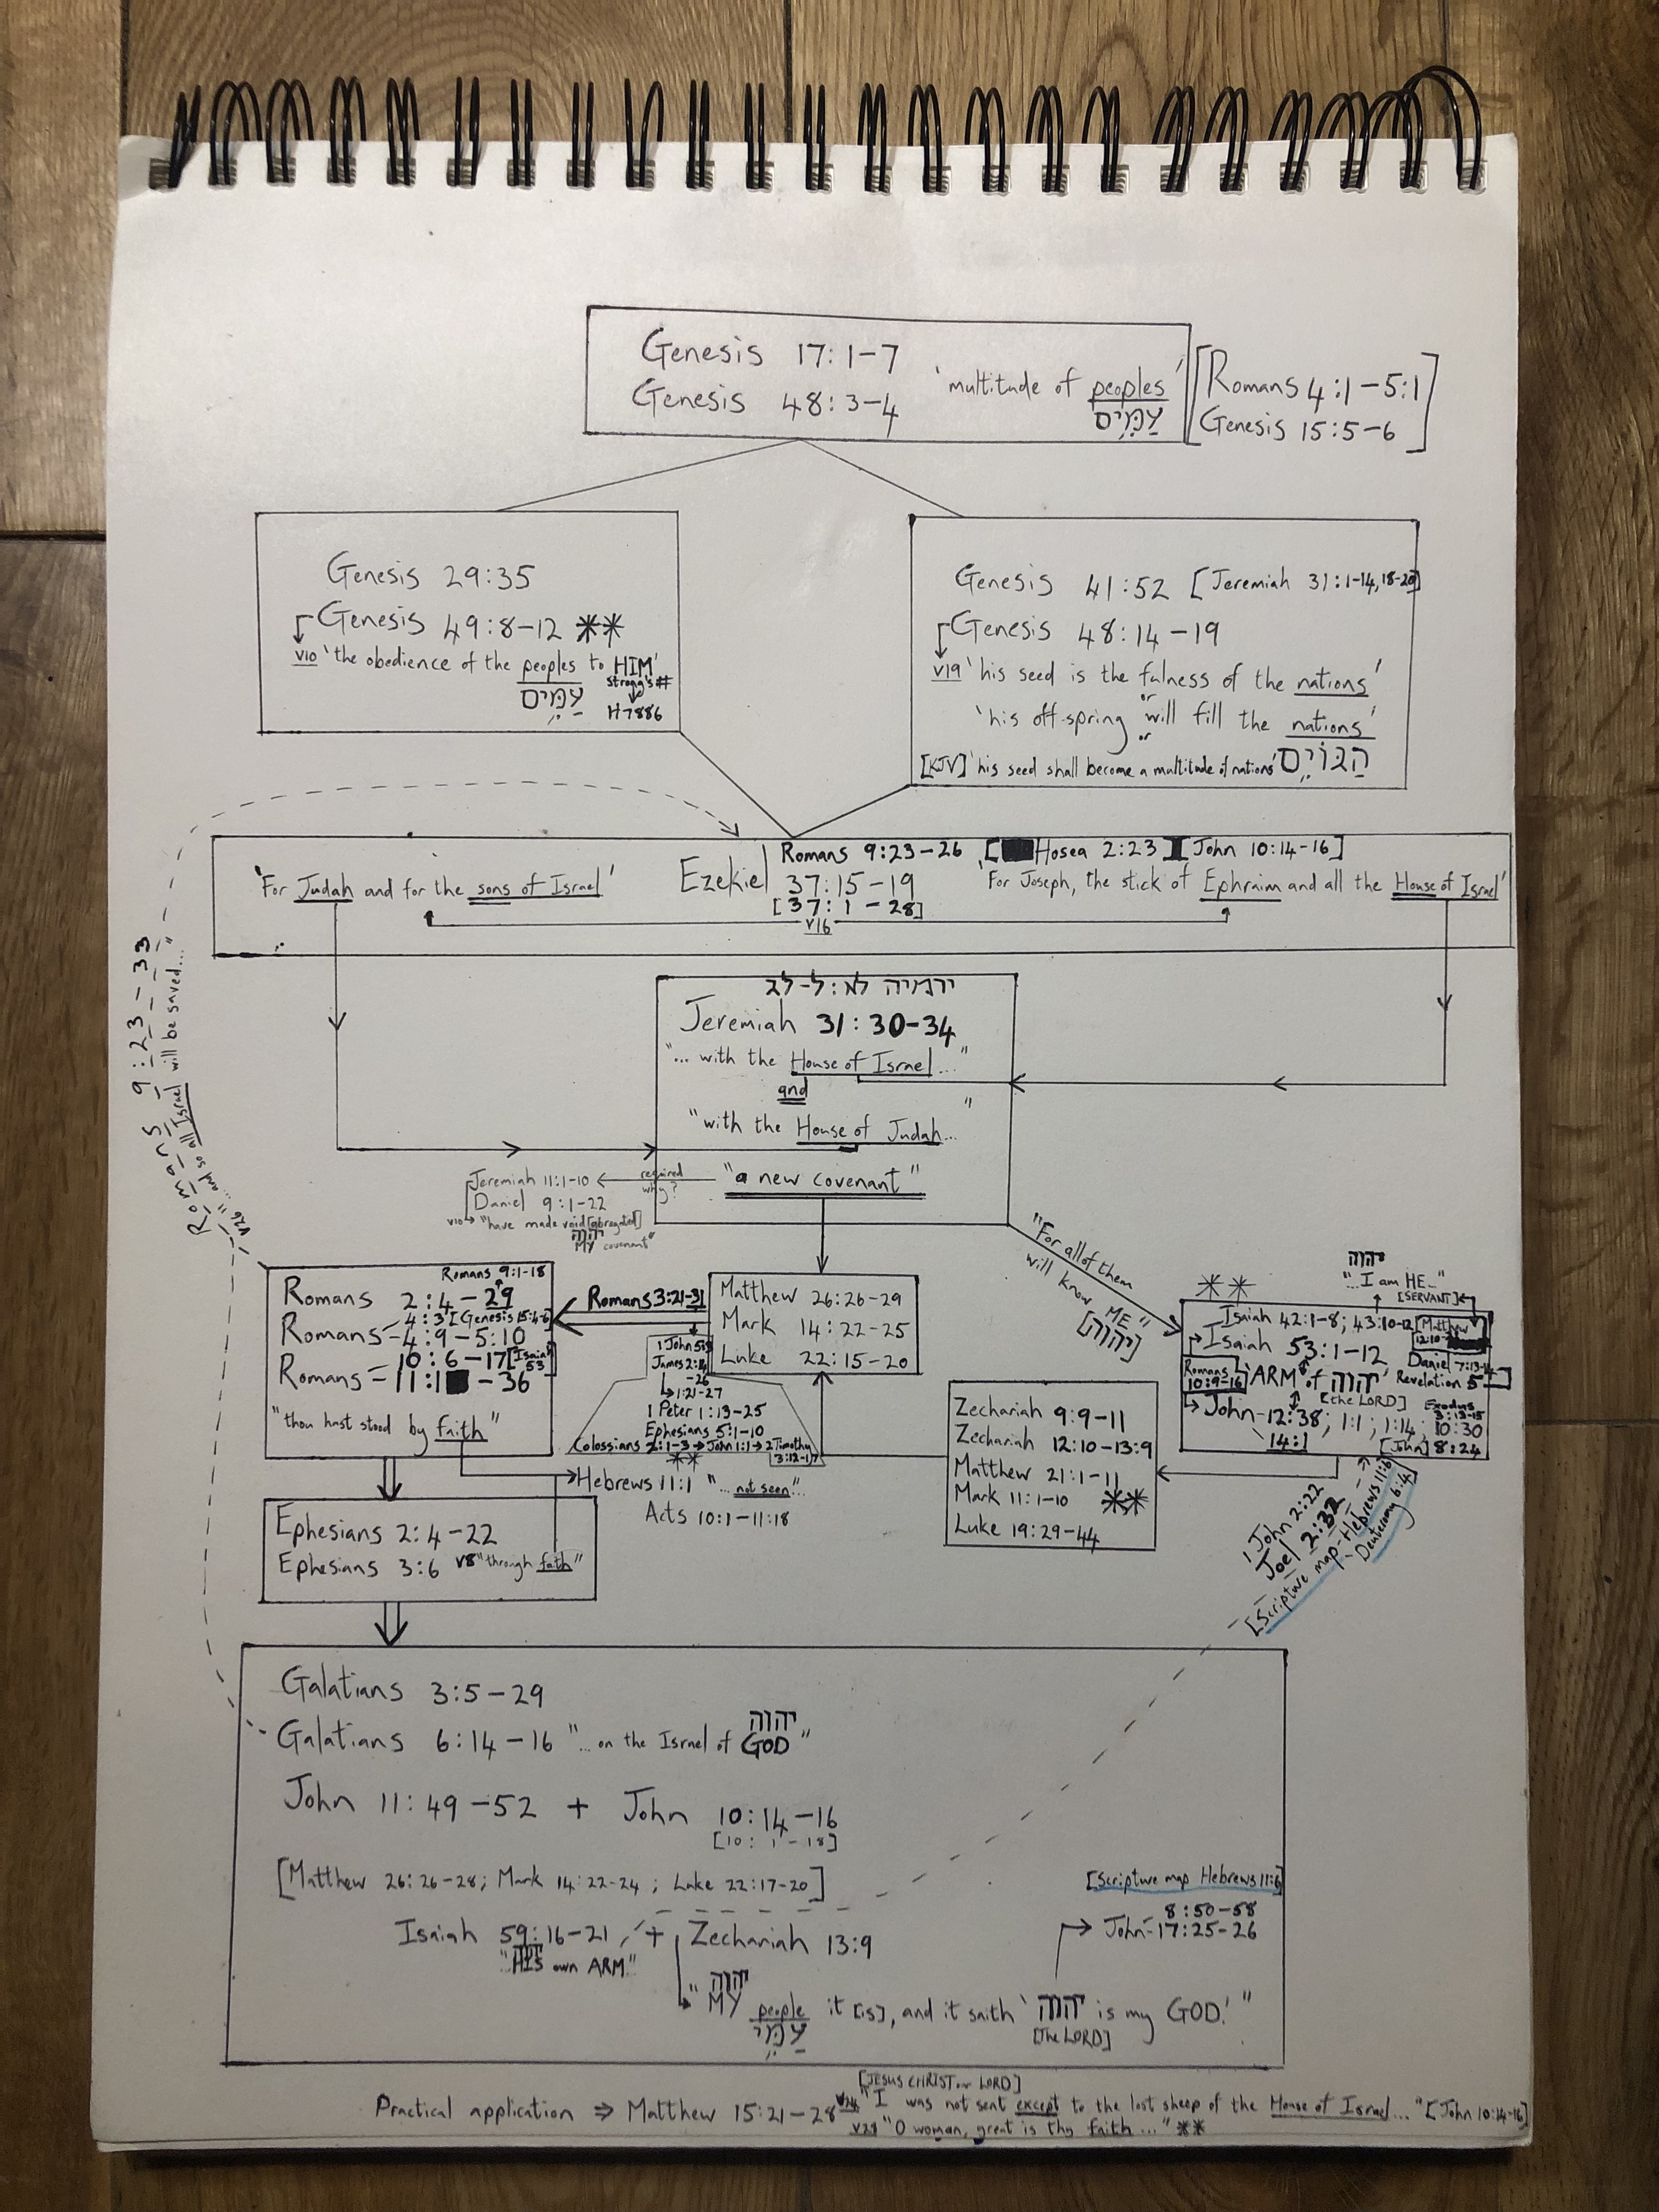 Genesis 17:1-7
Genesis 48:3-4 'multitude of peoples'
עַמִּים
[Romans 4:1-5:1
Genesis 15:5-6]
Genesis 29:35
Genesis 49:8-12 **
v10 'the obedience of the peoples to HIM'
עַמִּים
Strong's #
H7886
Genesis 41:52 [Jeremiah 31:1-14,18-20]
Genesis 48:14-19
v19 'his seed is the fulness of the nations'
or
'his off-spring will fill the nations'
or
[KJV] 'his seed shall become a multitude of nations' הַגּוֹיִם
Romans 9:23-26 [Hosea 2:23] [John 10:14-16]
'For Judah and for the sons of Israel'
Ezekiel 37:15-19
[37:1-28]
v16
'For Joseph, the stick of Ephraim and all the House of Israel'
Romans 9:23-33
v26 "...and so all Israel will be saved..."
ירמיה לא:ל-לג
Jeremiah 31:30-34
"... with the House of Israel..."
and
"with the House of Judah..."
"a new covenant"
required
why?
Jeremiah 11:1-10
Daniel 9:1-22
v10 "have made void [abrogated]
יהוה
MY covenant"
"For all of them
will know ME"
[יהוה]
Romans 9:1-18
Romans 2:4-29
4:3 [Genesis 15:4-6]
Romans 4:9-5:10
Romans 10:6-17 [Isaiah 53]
11:1 -36
"thou hast stood by faith"
Romans 3:21-31
Matthew 26:26-29
Mark 14:22-25
Luke 22:15-20
James 2:14
-26
1:21-27
1 Peter 1:13-25
Ephesians 5:1-10
Colossians 2:1-3 → John 1:1 → 2 Timothy
3:12-17
**
Hebrews 11:1 "... not seen"..
Acts 10:1-11:18
Zechariah 9:9-11
Zechariah 12:10-13:9
Matthew 21:1-11
Mark 11:1-10 **
Luke 19:29-44
יהוה
"...I am HE..."
[SERVANT]
**
Isaiah 42:1-8; 43:10-12 [Matthew
Isaiah 53:1-12
Daniel
Romans
10:9-16
'ARM' of יהוה
[the LORD]
Revelation 5
John 12:38; 1:1; 1:14; 10:30
14:1
Exodus
3:13-15
[John] 8:24
1 John 2:22
Joel 2:32
[Scripture map-Hebrews 11:6]
Deuteronomy 6:4]
Ephesians 2:4-22
Ephesians 3:6 v8 "through faith"
Galatians 3:5-29
Galatians 6:14-16 "... on the Israel of GOD"
יהוה
John 11:49-52 + John 10:14-16
[10:1-18]
[Matthew 26:26-28; Mark 14:22-24; Luke 22:17-20]
[Scripture map Hebrews 11:6]
8:50-58
John 17:25-26
Isaiah 59:16-21 + Zechariah 13:9
יהוה
"HIS own ARM"
יהוה
"MY people it [is], and it saith 'יהוה is my GOD.'"
עַמִּי
[The LORD]
[JESUS CHRIST our LORD]
Practical application ⇒ Matthew 15:21-28 v24 "I was not sent except to the lost sheep of the House of Israel..." [John 10:14-16]
v28 "O woman, great is thy faith..." **